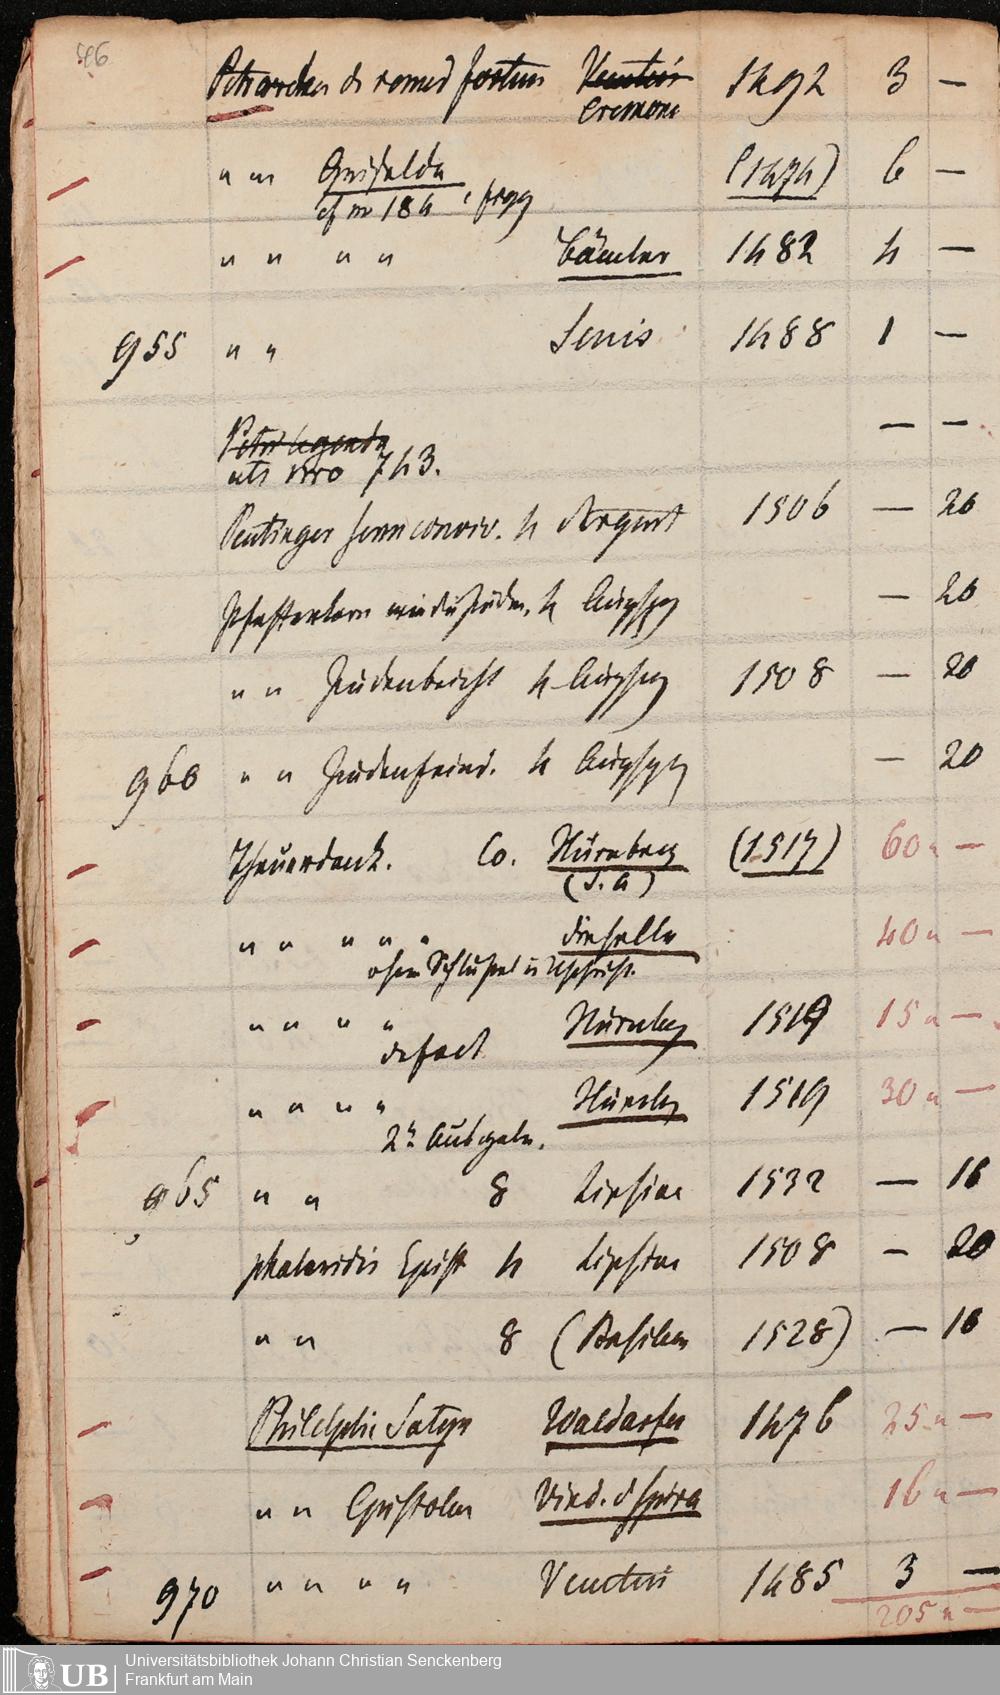 46
Petrarcha de remed fortun Venetiis 1492 3 —
Cremone
" " Griselda (1474) 6 —
cf nr 184
" " " " Bämler 1482 4 —
955 " " Senis 1488 1 —
Petri legenda — —
uts nro 743.
Peutinger serm conviv. 4 Argent 1506 — 20
Pfefferkorn 4 Augspg — 20
" " Judenbeicht 4 Augspg 1508 — 20
960 " " Judenfeind. 4 Augspg — 20
Theuerdank. Co. Nürnberg (1517) 60 " —
(S. a)
" " " " " dieselbe 40 " —
ohne Schlüssel u
" " " " Nürnbg 1519 15 " —
defect
" " " " Nürnbg 1519 30 " —
2te Ausgabe.
965 " " 8 Lipsiae 1532 — 16
phalaridis Epist 4 Lipsiae 1508 — 20
" " 8 (Basileae 1528) — 16
Philelphi Satyr Waldarfer 1476 25 " —
" " Epistolae Vind. d Spira 16 " —
970 " " " " Venetiis 1485 3 —
205 " —
UB
Universitätsbibliothek Johann Christian Senckenberg
Frankfurt am Main